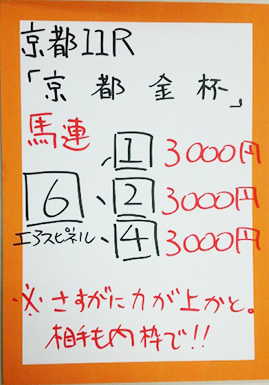 京都11R
「京都金杯」
馬連
、1 3000円
6、2 3000円
エアスピネル、4 3000円
※さすがに力が上かと。
相手も内枠で!!